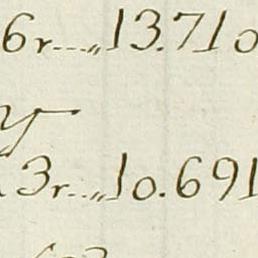 6r....,,13.710
y
3r....,,10.691